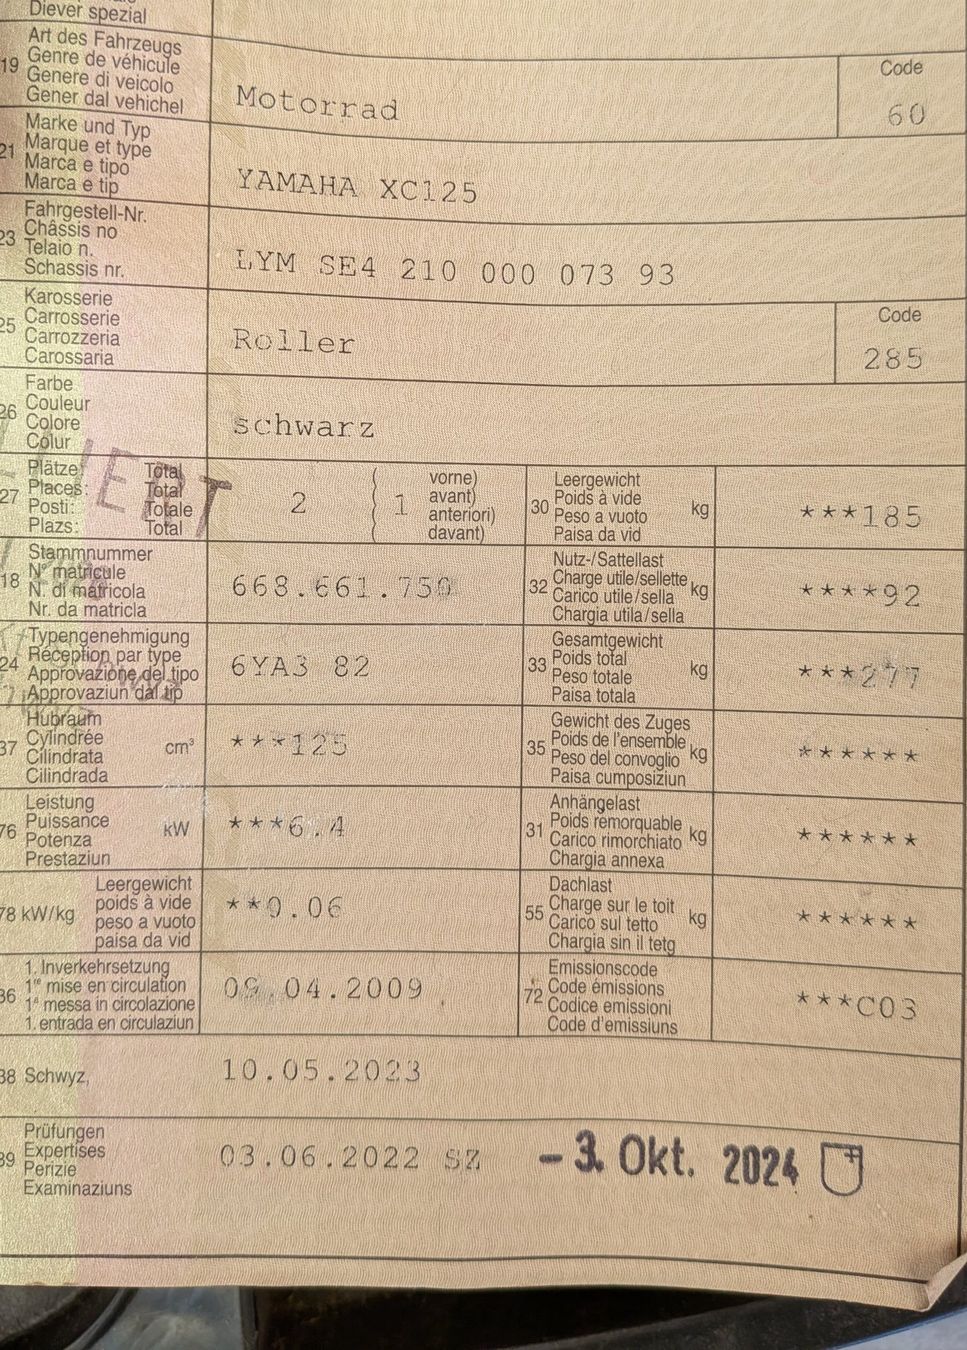 Diever spezial
19 Art des Fahrzeugs
Genre de véhicule
Genere di veicolo
Gener dal vehichel
Motorrad
Code
60
21 Marke und Typ
Marque et type
Marca e tipo
Marca e tip
YAMAHA XC125
23 Fahrgestell-Nr.
Châssis no
Telaio n.
Schassis nr.
LYM SE4 210 000 073 93
25 Karosserie
Carrosserie
Carrozzeria
Carossaria
Roller
Code
285
26 Farbe
Couleur
Colore
Colur
schwarz
27 Plätze: Total
Places: Total
Posti: Totale
Plazs: Total
2 ( 1 vorne)
avant)
anteriori)
davant)
30 Leergewicht
Poids à vide
Peso a vuoto
Paisa da vid
kg
***185
18 Stammnummer
N° matricule
N. di matricola
Nr. da matricla
668.661.750
32 Nutz-/Sattellast
Charge utile/sellette
Carico utile/sella
Chargia utila/sella
kg
****92
24 Typengenehmigung
Réception par type
Approvazione del tipo
Approvaziun dal tip
6YA3 82
33 Gesamtgewicht
Poids total
Peso totale
Paisa totala
kg
***277
37 Hubraum
Cylindrée
Cilindrata
Cilindrada
cm³
***125
35 Gewicht des Zuges
Poids de l'ensemble
Peso del convoglio
Paisa cumposiziun
kg
******
76 Leistung
Puissance
Potenza
Prestaziun
kW
***6.4
31 Anhängelast
Poids remorquable
Carico rimorchiato
Chargia annexa
kg
******
78 kW/kg
Leergewicht
poids à vide
peso a vuoto
paisa da vid
**0.06
55 Dachlast
Charge sur le toit
Carico sul tetto
Chargia sin il tetg
kg
******
36 1. Inverkehrsetzung
1re mise en circulation
1a messa in circolazione
1. entrada en circulaziun
09.04.2009
72 Emissionscode
Code émissions
Codice emissioni
Code d'emissiuns
***C03
38 Schwyz,
10.05.2023
39 Prüfungen
Expertises
Perizie
Examinaziuns
03.06.2022 SZ
-3. Okt. 2024